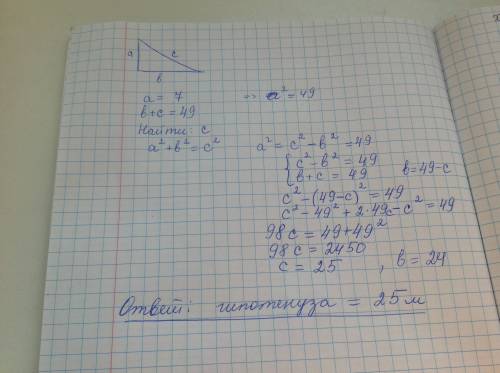 a c
в
a = 7 => a² = 49
в+c = 49
Найти: c
a²+в²=c² a² = c² - в² = 49
{ c² - в² = 49
в+c = 49 в=49-c
c² - (49-c)² = 49
c² - 49² + 2·49c - c² = 49
98c = 49+49²
98c = 2450
c = 25 , в = 24
Ответ: гипотенуза = 25м